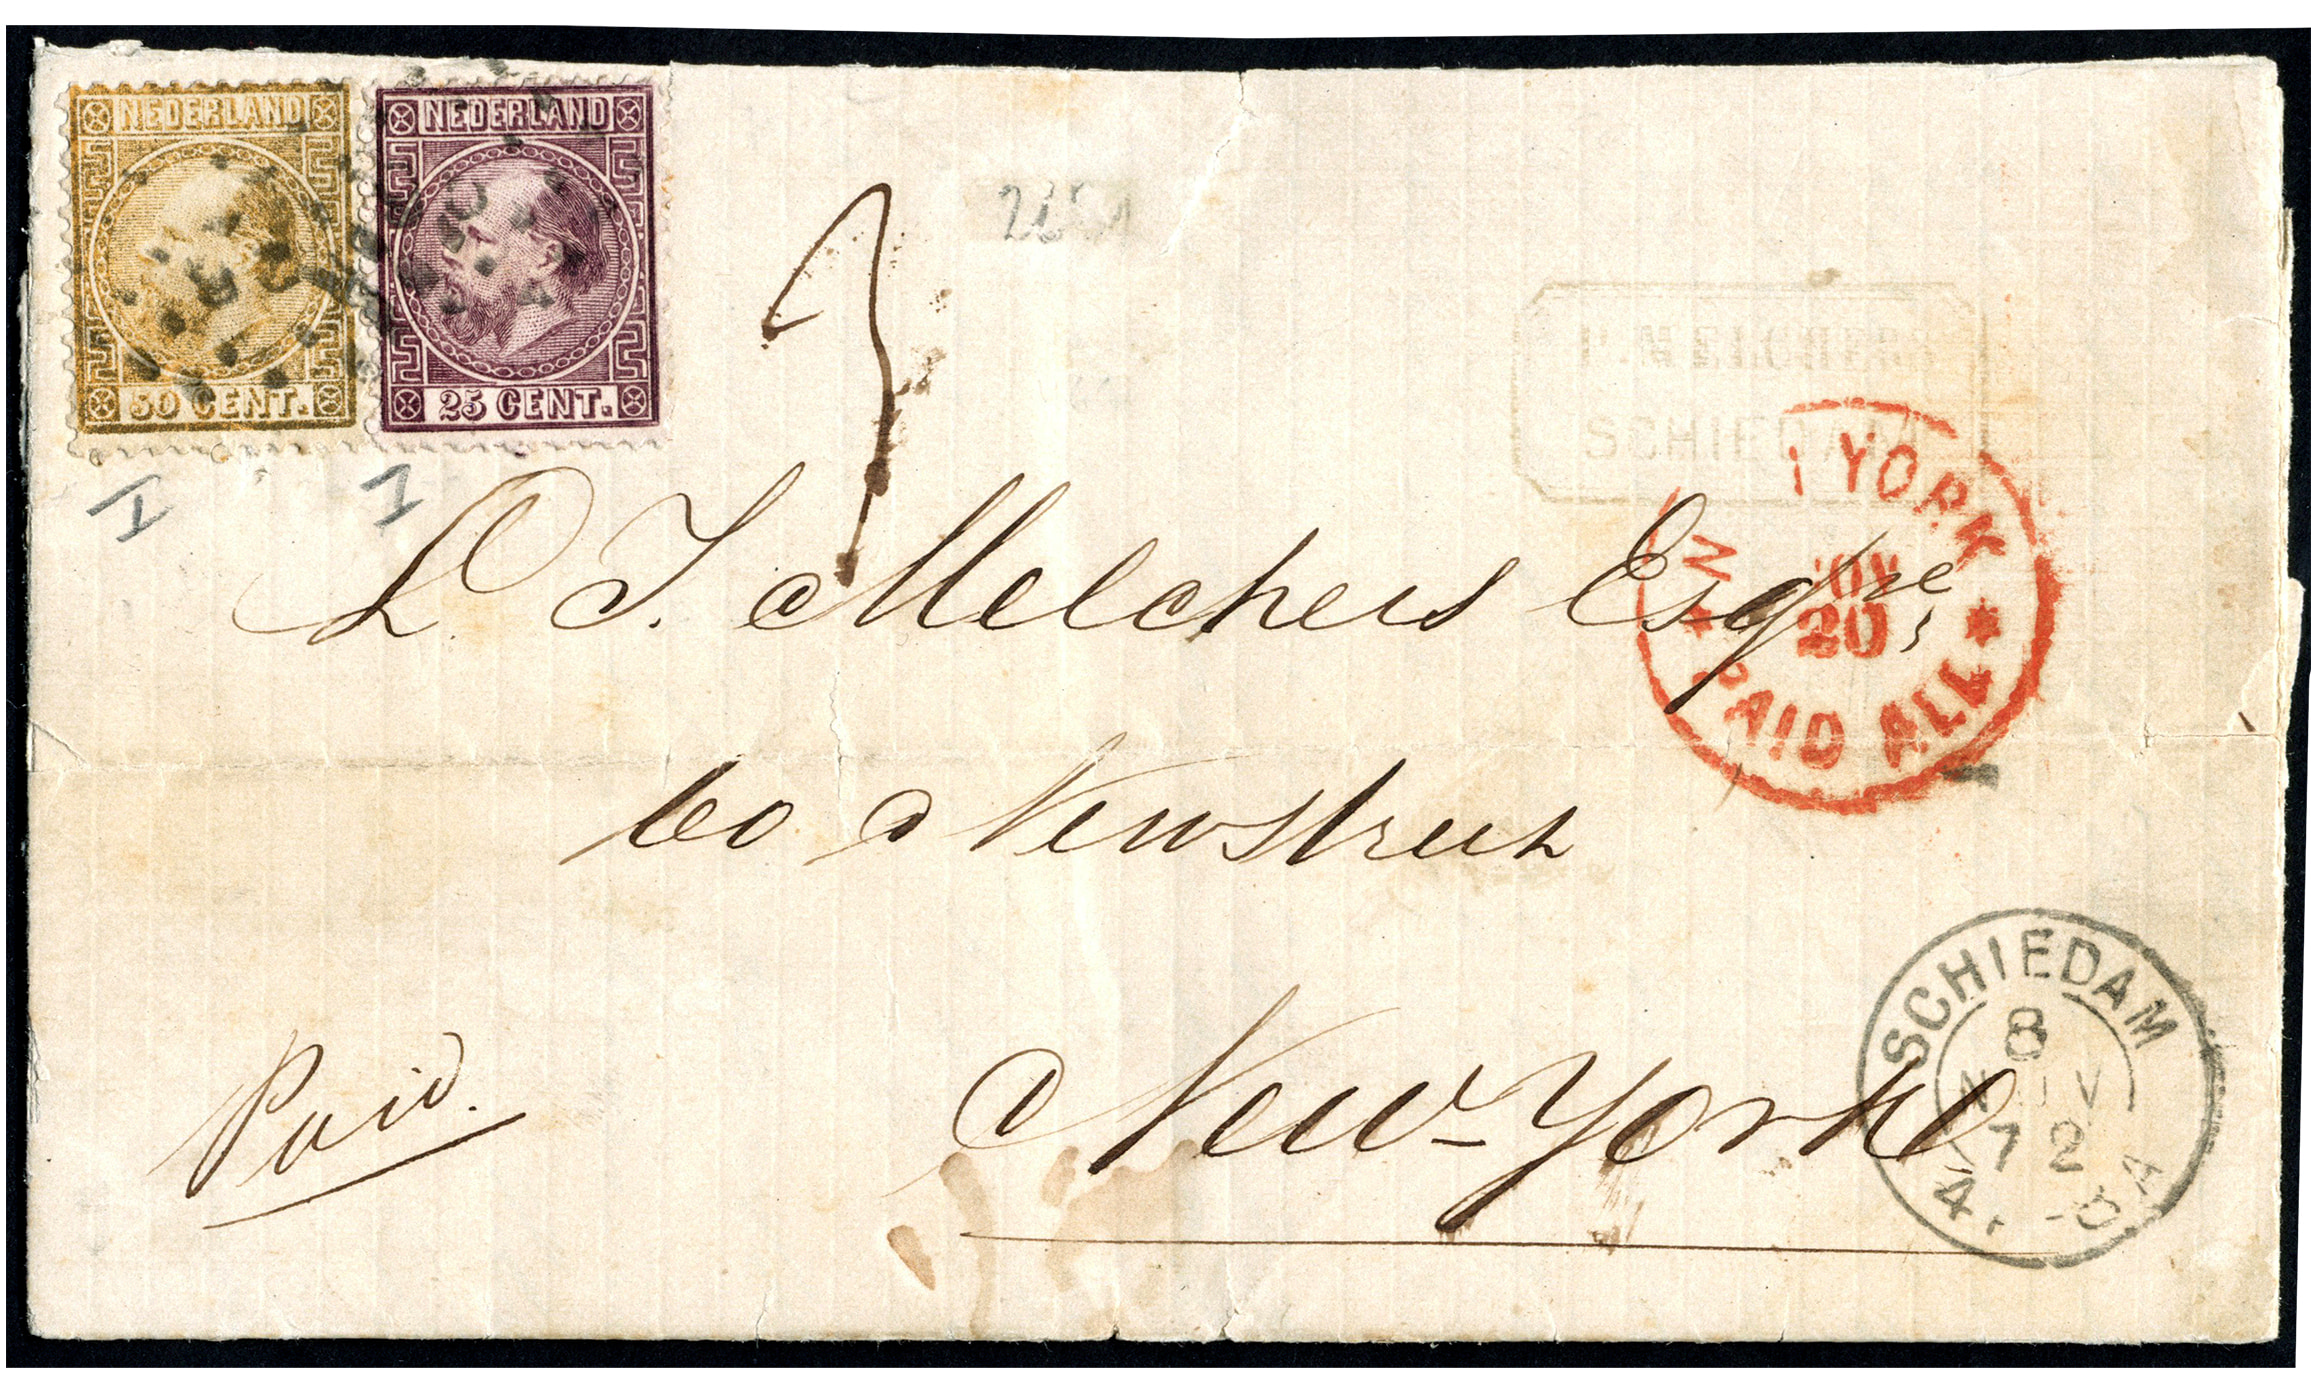 NEDERLAND
50 CENT.
NEDERLAND
25 CENT.
I
I
P. MELCHERS
SCHIEDAM
N YORK
NOV
20
PAID ALL
L. J. Melchers Esqre,
60 Newstreet
New-York
Paid.
SCHIEDAM
8
NOV
72